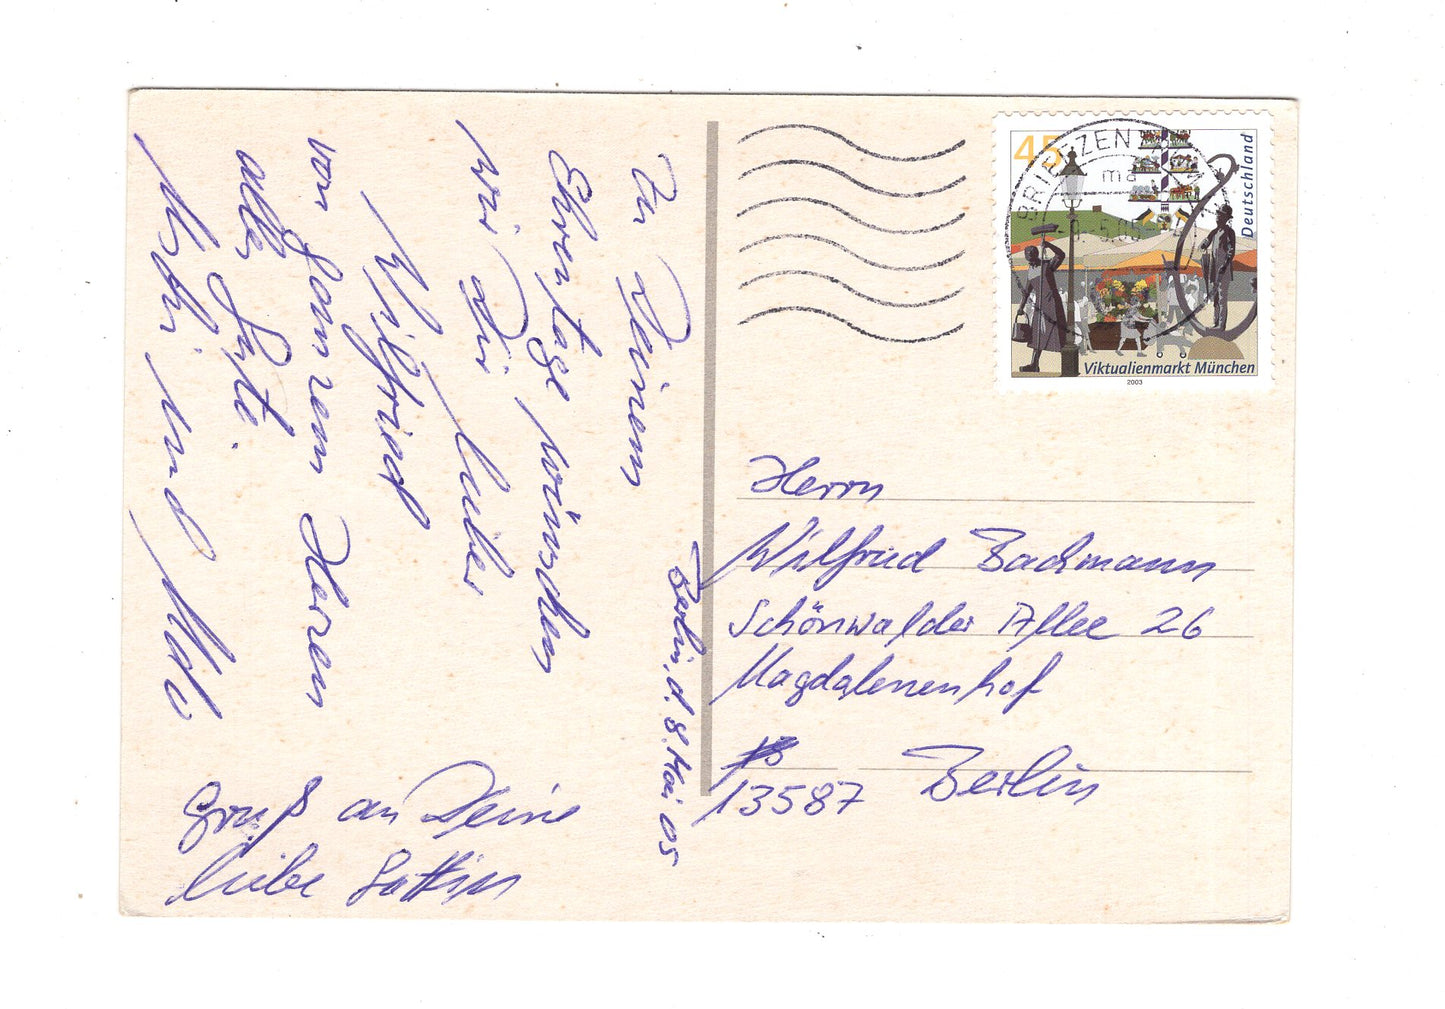 Berlin, d. 8. Mai 05
Zu Deinem
Ehrentage wünschen
wir Dir, lieber
Wilfried
von ganzem Herzen
alles Gute.
und
Gruß an Deine
liebe Gattin
45
Deutschland
Viktualienmarkt München
2003
BRIEFZENTRUM
ma
Herrn
Wilfried Bachmann
Schönwalder Allee 26
Magdalenenhof
13587 Berlin